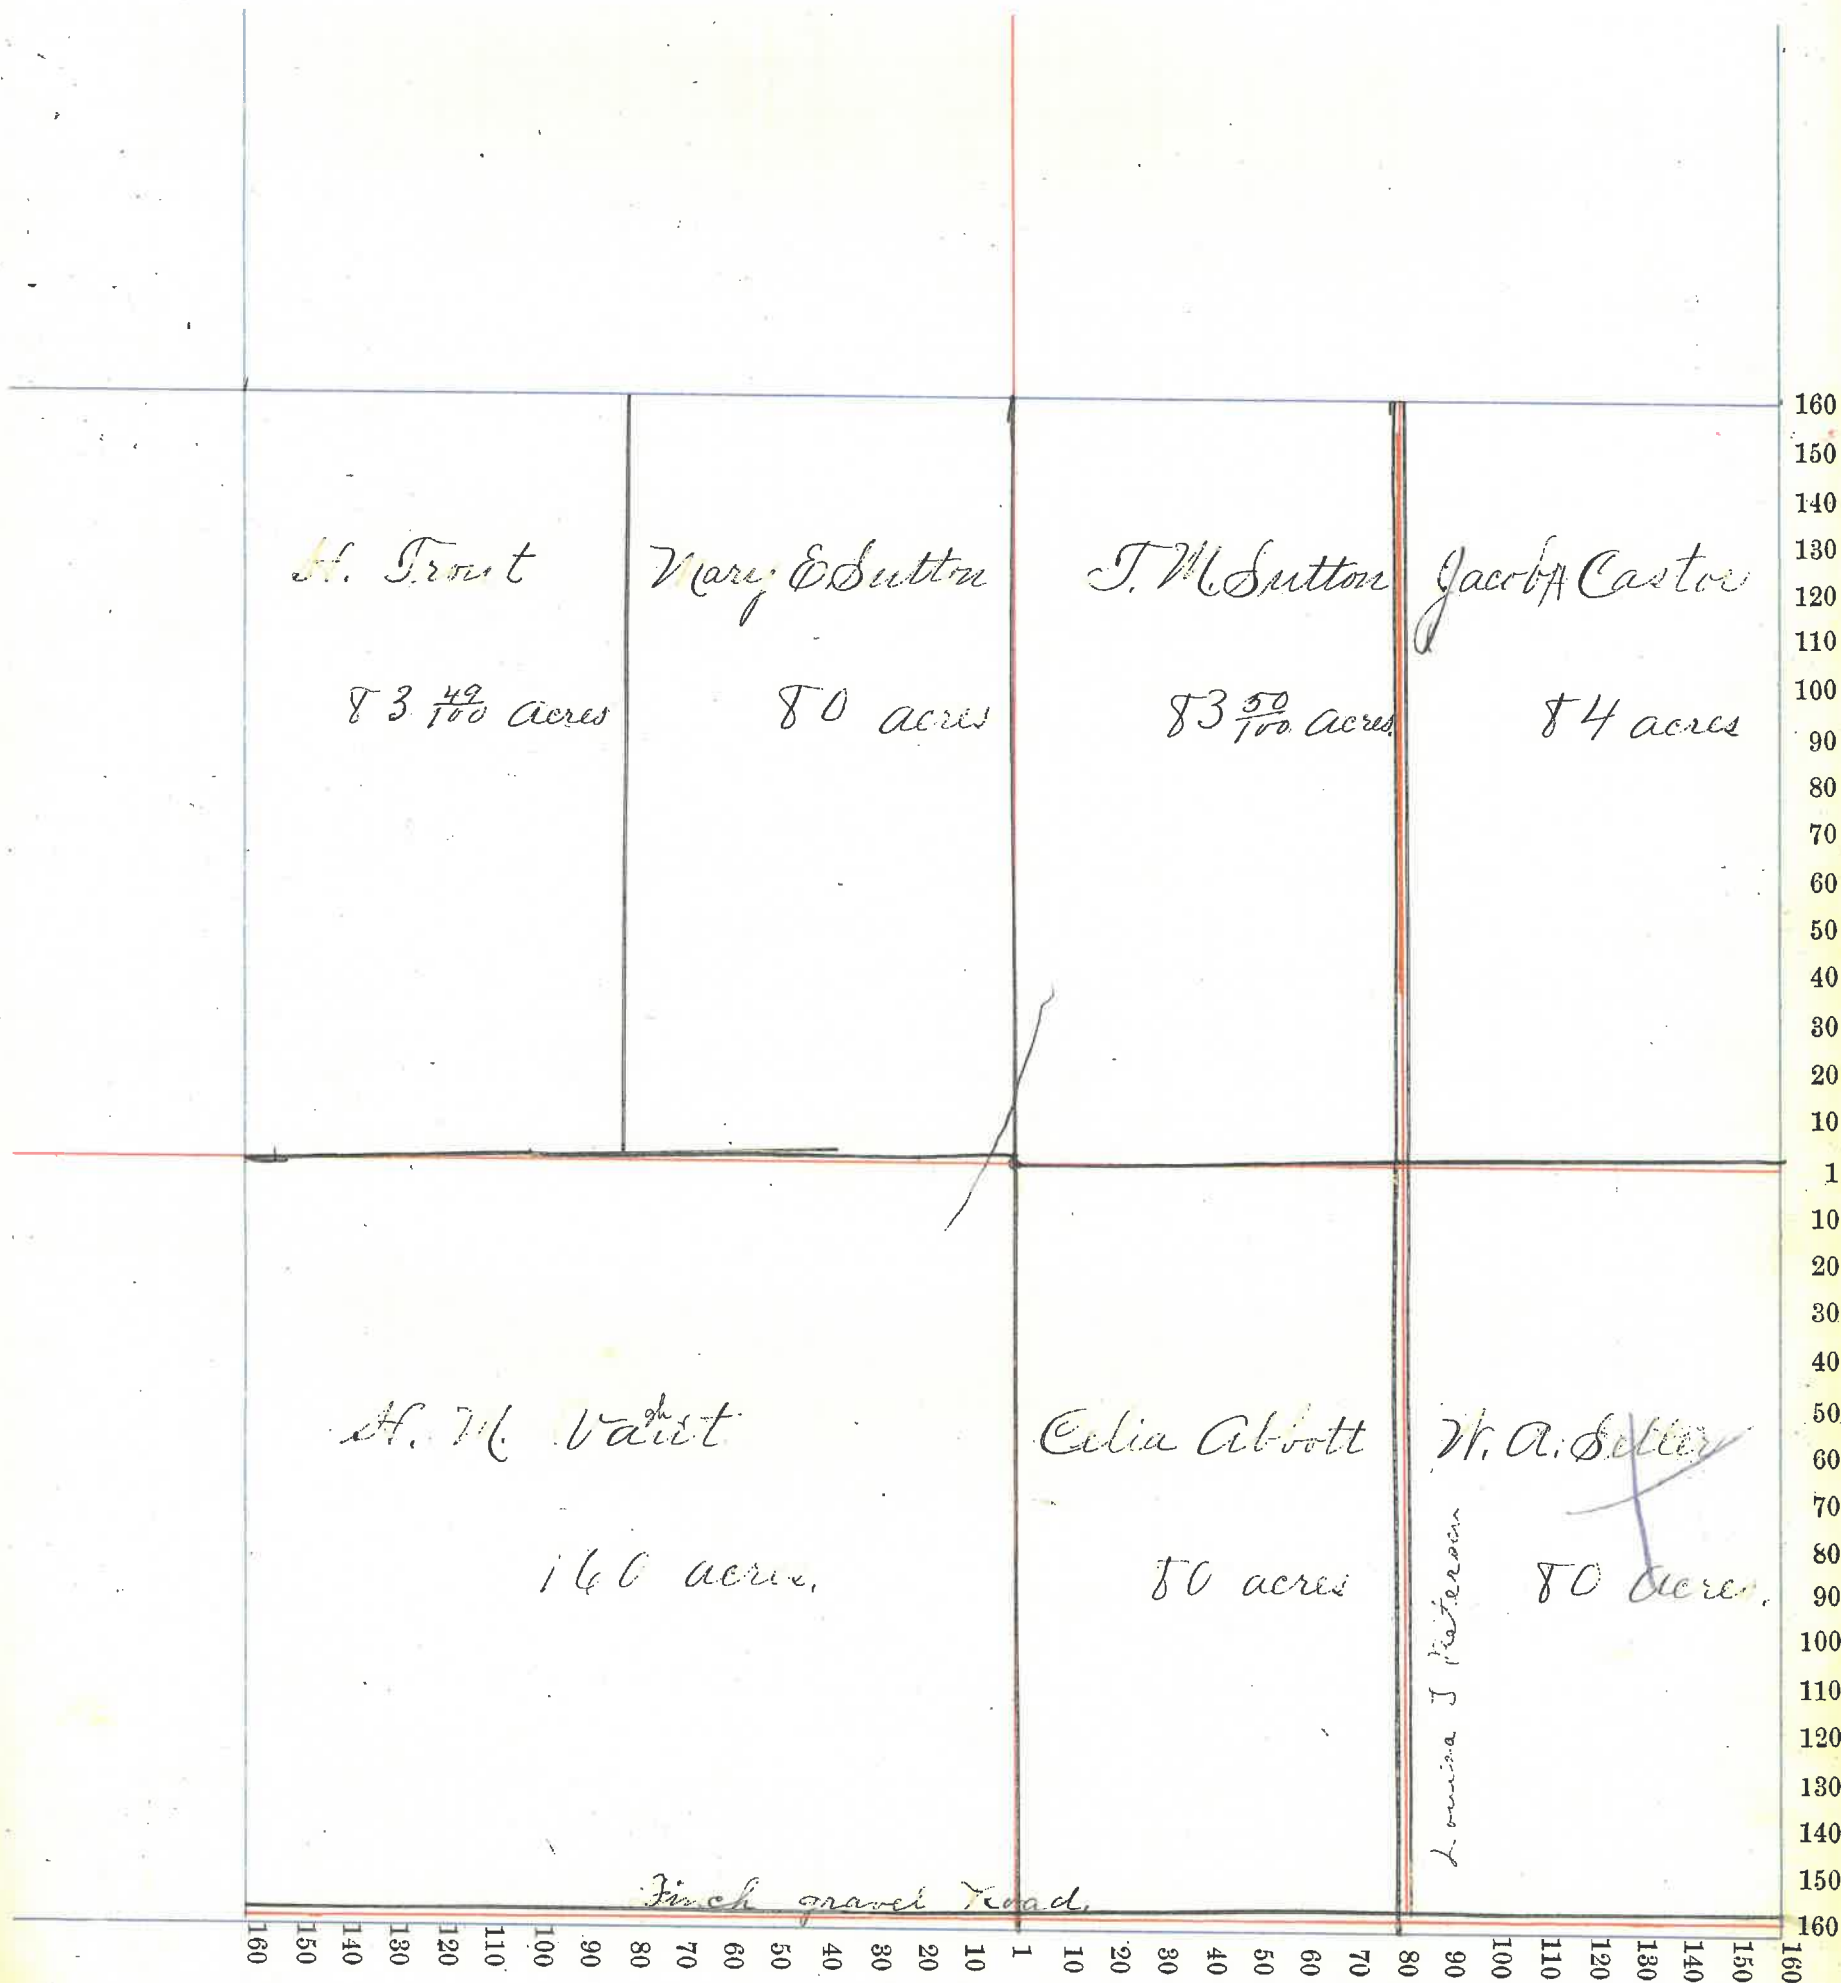 H. Trout
83 49/100 acres
Mary E Sutton
80 acres
T. M. Sutton
83 50/100 acres
Jacob A Castor
84 acres
H. M. Vaut
gh
160 acres.
Celia Abbott
80 acres
W. A. 
80 acres.
Louisa J Peterson
Finch gravel Road.
160
150
140
130
120
110
100
90
80
70
60
50
40
30
20
10
1
10
20
30
40
50
60
70
80
90
100
110
120
130
140
150
160
160 150 140 130 120 110 100 90 80 70 60 50 40 30 20 10 1 10 20 30 40 50 60 70 80 90 100 110 120 130 140 150 160